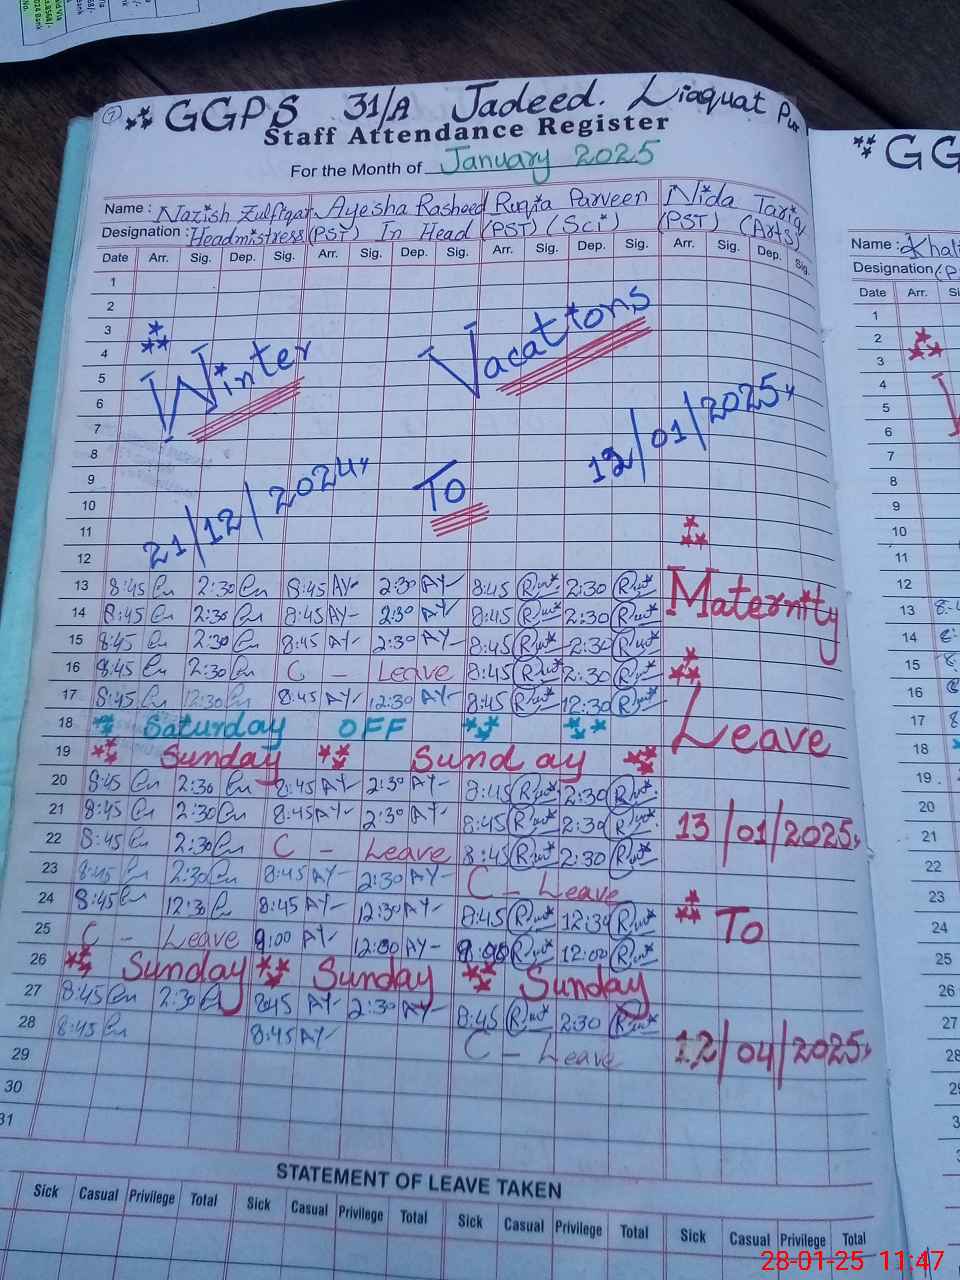 GGPS 31/A Jadeed. Liaquat Pur
Staff Attendance Register
For the Month of January 2025
Name: Nazish Zulfiqar Ayesha Rasheed Ruqia Parveen Nida Tariq
Designation: Headmistress (PST) In Head (PST) (Sci) (PST) (Arts)
Date Arr. Sig. Dep. Sig. Arr. Sig. Dep. Sig. Arr. Sig. Dep. Sig. Arr. Sig. Dep. Sig.
1
2
3
4
5
6
7
8
9
10
11
12
Winter Vacations
21/12/2024 To 12/01/2025
13 8:45 2:30 8:45 AY 2:30 AY 8:45 2:30
14 8:45 2:30 8:45 AY 2:30 AY 8:45 2:30
15 8:45 2:30 8:45 AY 2:30 AY 8:45 2:30
16 8:45 2:30 C - Leave 8:45 2:30
17 8:45 12:30 8:45 AY 12:30 AY 8:45 12:30
18 Saturday OFF
19 Sunday Sunday
20 8:45 2:30 8:45 AY 2:30 AY 8:45 2:30
21 8:45 2:30 8:45 AY 2:30 AY 8:45 2:30
22 8:45 2:30 C - Leave 8:45 2:30
23 8:45 2:30 8:45 AY 2:30 AY C - Leave
24 8:45 12:30 8:45 AY 12:30 AY 8:45 12:30
25 C - Leave 9:00 AY 12:00 AY 9:00 12:00
26 Sunday Sunday Sunday
27 8:45 2:30 8:45 AY 2:30 AY 8:45 2:30
28 8:45 8:45 AY C - Leave
29
30
31
Maternity
Leave
13/01/2025
To
12/04/2025
STATEMENT OF LEAVE TAKEN
Sick Casual Privilege Total Sick Casual Privilege Total Sick Casual Privilege Total Sick Casual Privilege Total
GG
Name:
Designation
Date Arr.
1
2
3
4
5
6
7
8
9
10
11
12
13
14
15
16
17
18
19
20
21
22
23
24
25
26
27
28
28-01-25 11:47